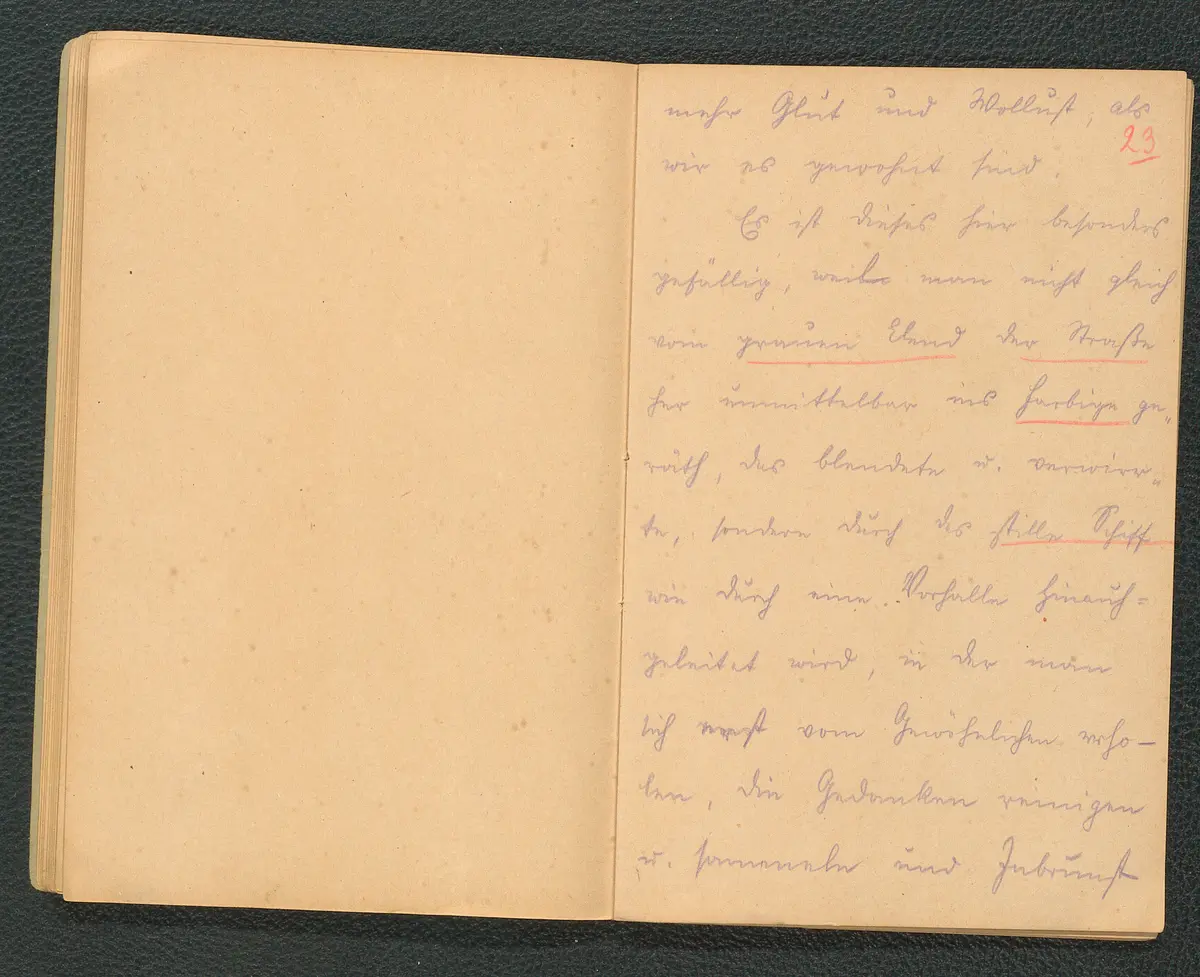 mehr Glut und Wollust, als
23
wir es gewohnt sind.
Es ist dieses hier besonders
gefällig, weil man nicht gleich
vom grauen Elend der Straße
her unmittelbar ins Farbige ge„
räth, das blendete u. verwirr„
te, sondern durch das stille Schiff
wie durch eine Vorhalle hinauf=
geleitet wird, in der man
sich erst vom Gewöhnlichen erho–
len, die Gedanken reinigen
u. sammeln und Inbrunst